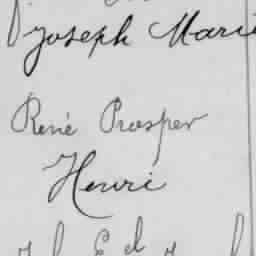 Joseph Mari
René Prosper
Henri